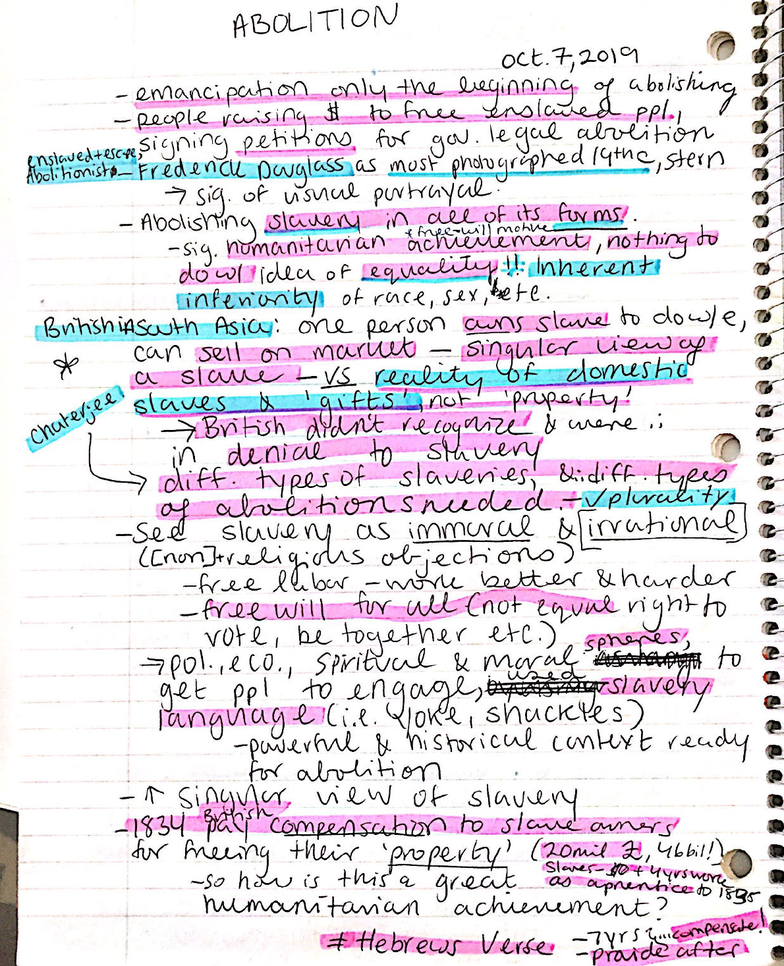 ABOLITION
Oct. 7, 2019
- emancipation only the beginning of abolishing
- people raising $ to free enslaved ppl,
signing petitions for gov. legal abolition
enslaved + escape,
Abolitionist - Frederick Douglass as most photographed 19thc, stern
→ sig. of usual portrayal.
- Abolishing slavery in all of its forms.
+ free-will motive
- sig. humanitarian achievement, nothing to
do w/ idea of equality!! Inherent
inferiority of race, sex, etc.
British in South Asia: one person owns slave to do w/e,
* can sell on market - singular view of
a slave - vs reality of domestic
slaves & 'gifts', not 'property'
Chaterjee
→ British didn't recognize & were ::
in denial to slavery
→ diff. types of slaveries, & :: diff. types
of abolitions needed. - √plurality
- See slavery as immoral & irrational
([non]+religious objections)
- free labor - work better & harder
- free will for all (not equal right to
vote, be together etc.)
→ pol., eco., spiritual & moral spheres, to
get ppl to engage, used slavery
language (i.e. yoke, shackles)
- powerful & historical context ready
for abolition
- ↑ singular view of slavery
- 1834 British pay compensation to slave owners
for freeing their 'property' (20mil £, 46bil!)
slaves - $0 + 4yrs work
as aprentice to 1835
- so how is this a great
humanitarian achievement?
≠ Hebrews Verse - 7yrs ... compensate!
- provide after